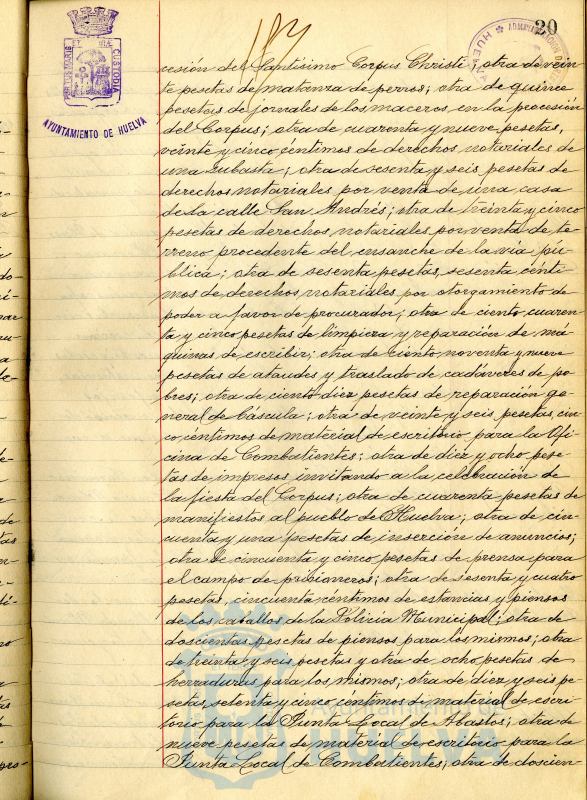 20
PORTUS MARIS ET TERRAE CUSTODIA
AYUNTAMIENTO DE HUELVA
HUELVA
cesión del Santísimo Corpus Christi; otra de vein-
te pesetas de matanza de perros; otra de quince
pesetas de jornales de los maceros en la procesión
del Corpus; otra de cuarenta y nueve pesetas,
veinte y cinco céntimos de derechos notariales de
una subasta; otra de sesenta y seis pesetas de
derechos notariales por venta de una casa
de la calle San Andrés; otra de treinta y cinco
pesetas de derechos notariales por venta de te-
rreno procedente del ensanche de la vía pú-
blica; otra de sesenta pesetas, sesenta cénti-
mos de derechos notariales por otorgamiento de
poder a favor de procurador; otra de ciento cuaren-
ta y cinco pesetas de limpieza y reparación de má-
quinas de escribir; otra de ciento noventa y nueve
pesetas de ataudes y traslado de cadáveres de po-
bres; otra de ciento diez pesetas de reparación ge-
neral de báscula; otra de veinte y seis pesetas, cin-
co céntimos de material de escritorio para la Ofi-
cina de Combatientes; otra de diez y ocho pese-
tas de impresos invitando a la celebración de
la fiesta del Corpus; otra de cuarenta pesetas de
manifiestos al pueblo de Huelva; otra de cin-
cuenta y una pesetas de inserción de anuncios;
otra de cincuenta y cinco pesetas de prensa para
el campo de prisioneros; otra de sesenta y cuatro
pesetas, cincuenta céntimos de estancias y piensos
de los caballos de la Policía Municipal; otra de
doscientas pesetas de piensos para los mismos; otra
de treinta y seis pesetas y otra de ocho pesetas de
herraduras para los mismos; otra de diez y seis pe-
setas, setenta y cinco céntimos de material de escri-
torio para la Junta Local de Abastos; otra de
nueve pesetas de material de escritorio para la
Junta Local de Combatientes; otra de doscien-
Ayuntamiento de
HUELVA